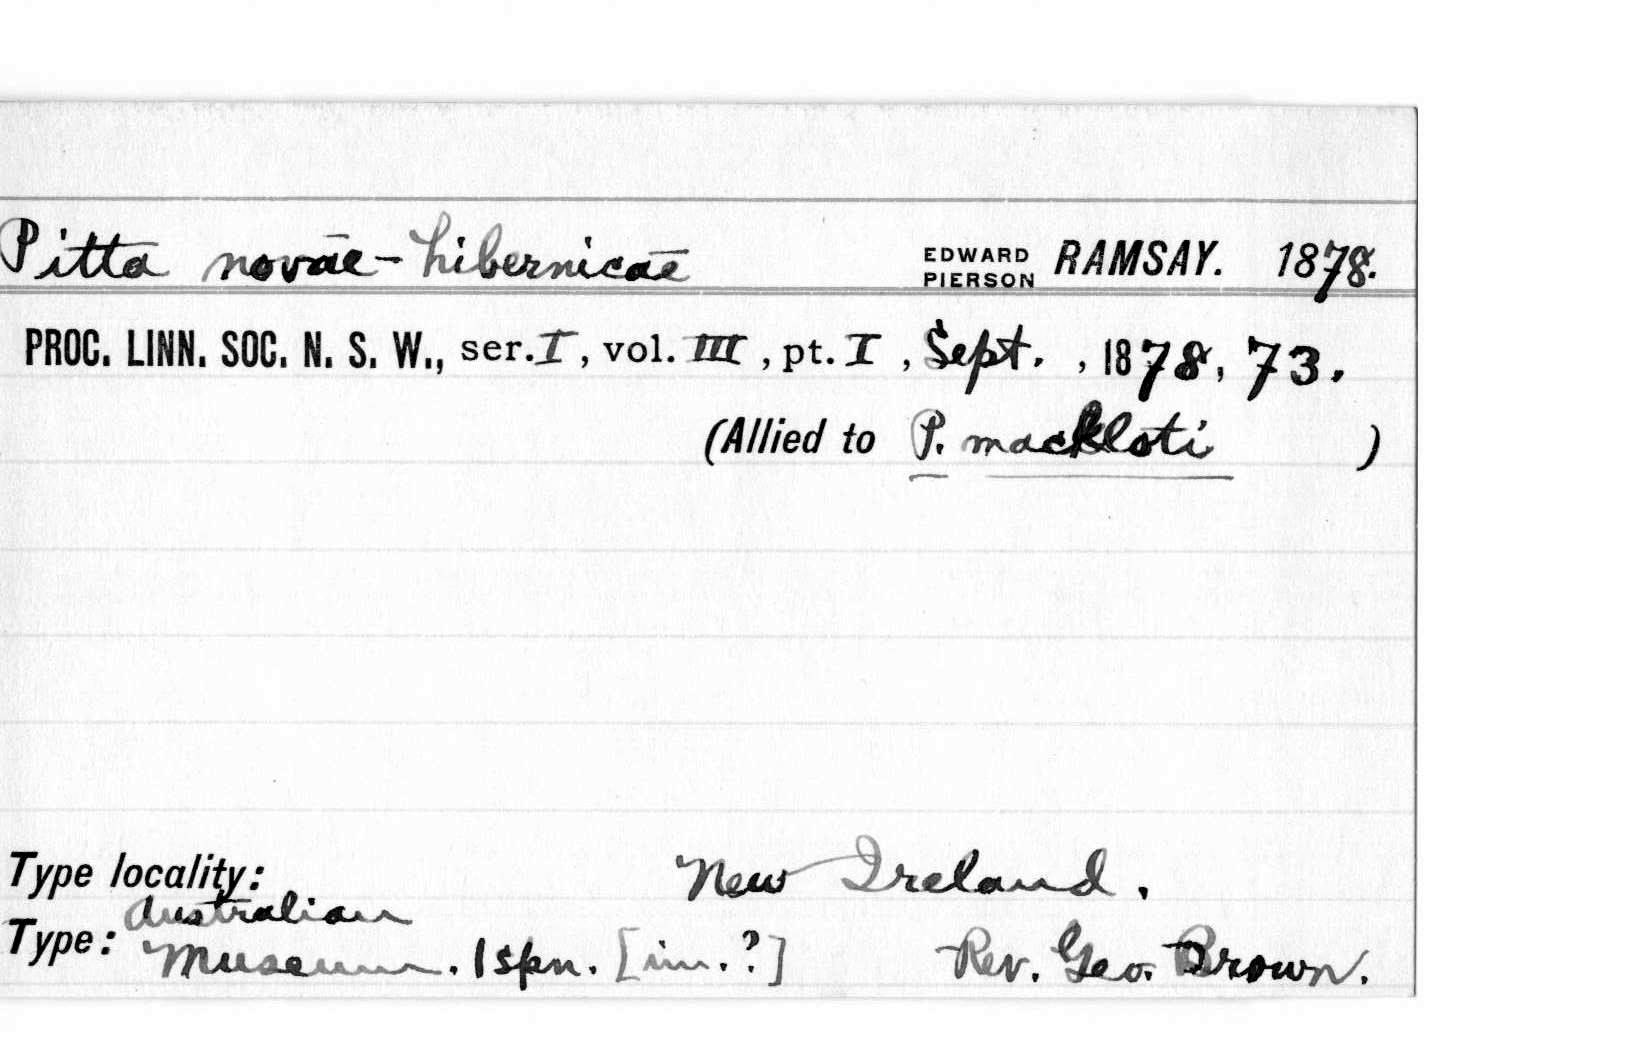 Pitta novae-hibernicae EDWARD PIERSON RAMSAY. 1878.
PROC. LINN. SOC. N. S. W., ser. I, vol. III, pt. I, Sept., 1878, 73.
(Allied to P. mackloti)
Type locality: New Ireland.
Type: Australian Museum. 1 spn. [im.?] Rev. Geo. Brown.